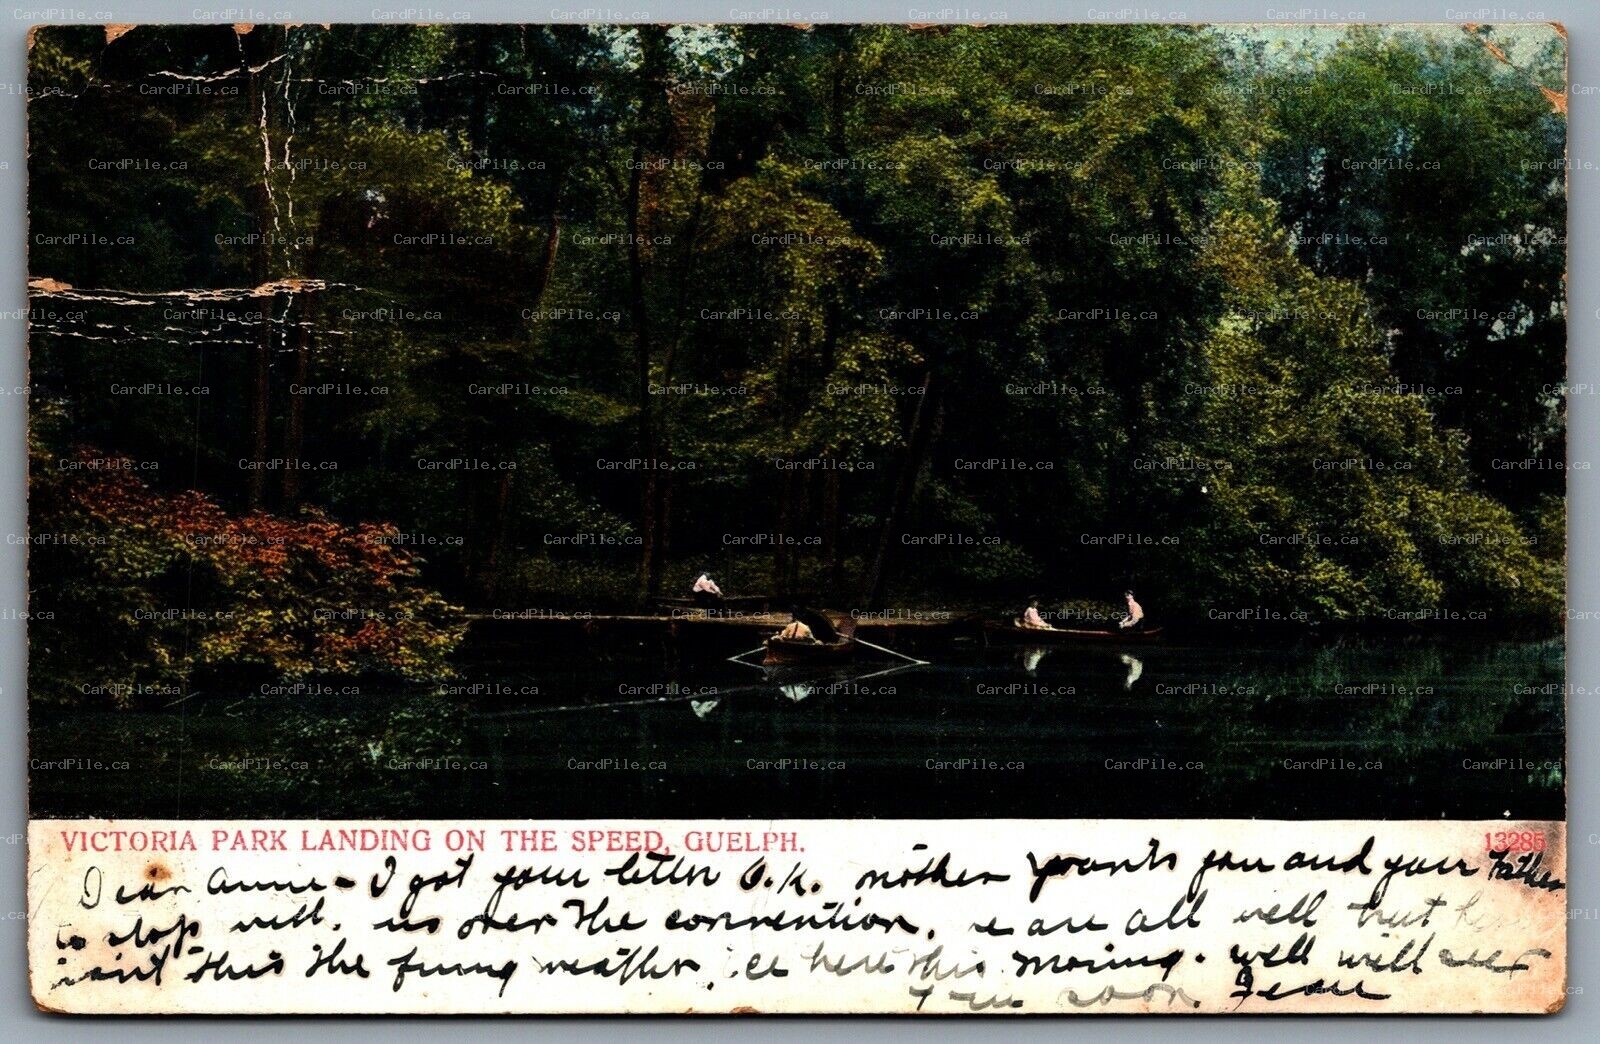 VICTORIA PARK LANDING ON THE SPEED, GUELPH. 13285
Dear Anne - I got your letter O.K. mother wants you and your Father
to stop with us over the convention, we are all well but
isn't this the funny weather, ice here this morning. well will see
you soon. Jean
CardPile.ca